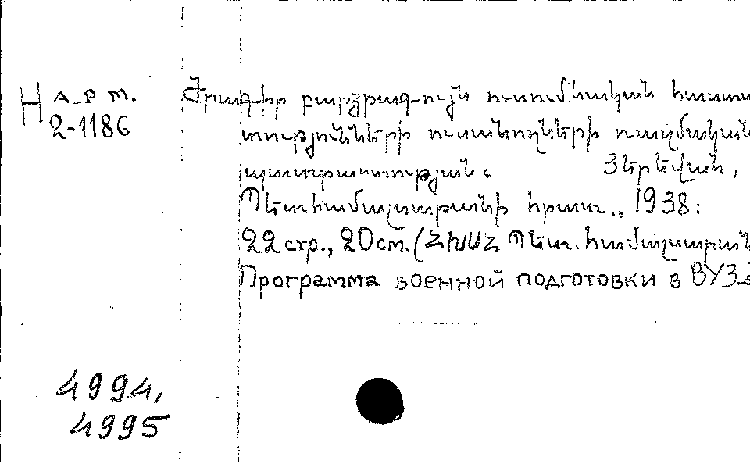 H арм.
2-1186
Ծրագիր բարձրագույն ուսումնական հաստա
տությունների ուսանողների ռազմական
պատրաստության: Յերեվան,
Պետհամալսարանի հրատ., 1938:
22 стр., 20 см. (ՀԽՍՀ Պետ. համալսարան
Программа военной подготовки в ВУЗ-
4994,
4995